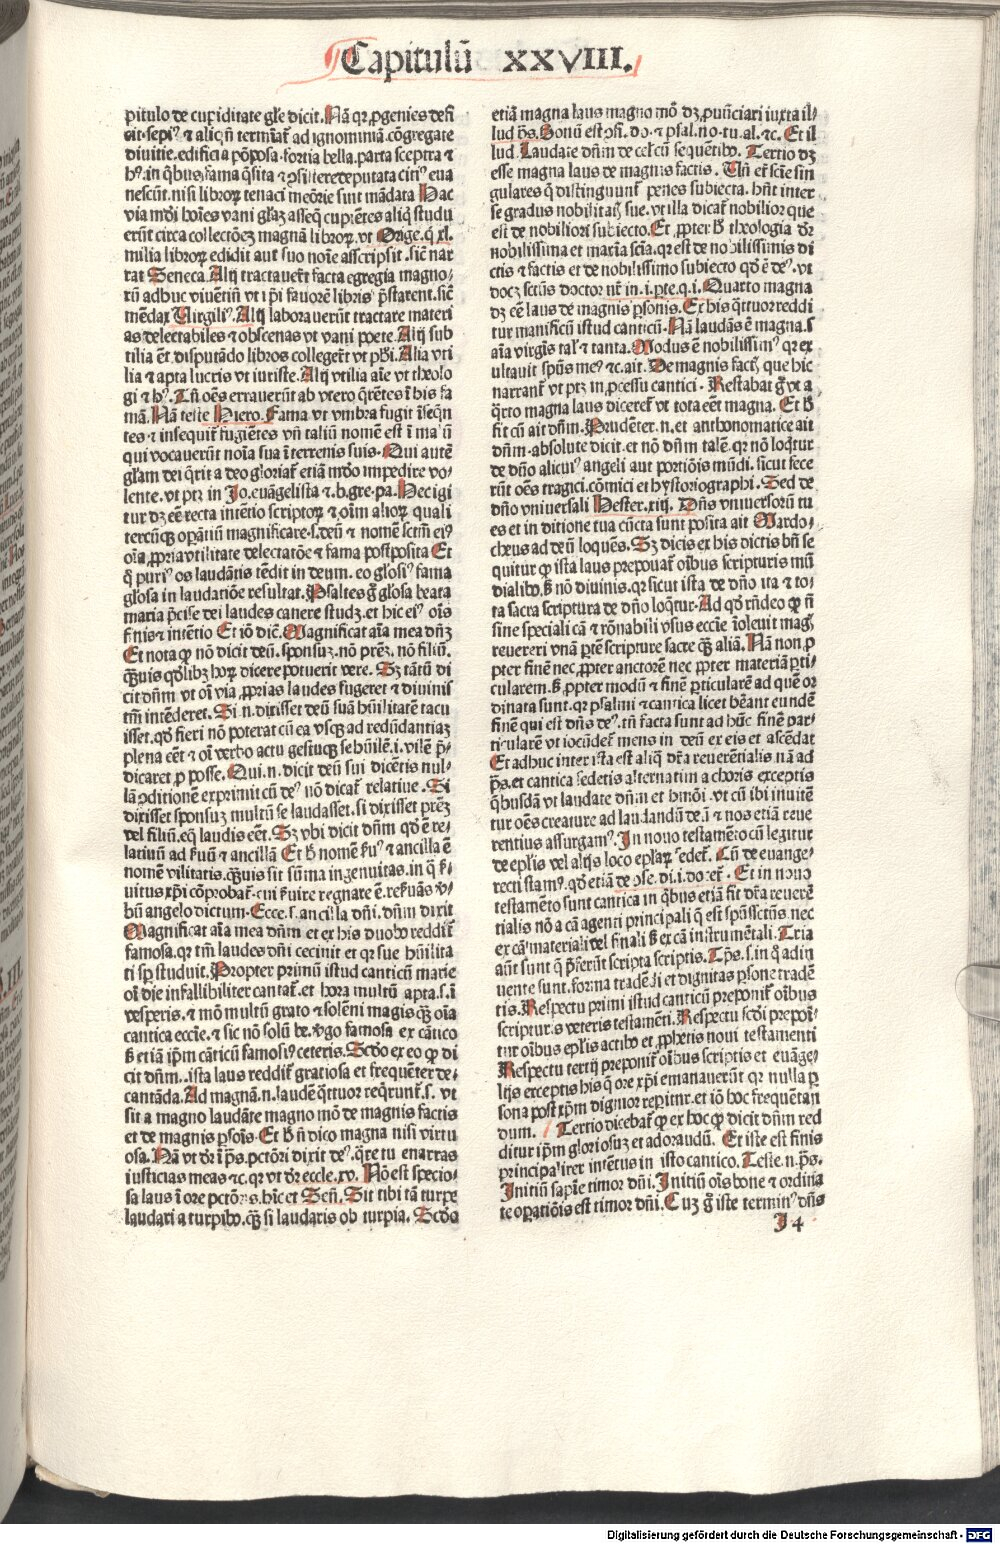 Capitulū XXVIII.
pitulo de cupiditate gl̄e dicit. Nā qꝛ ꝓgenies defi
sit. sepiꝰ ⁊ aliqn̄ termīat̄ ad ignominiā cōgregate
diuitie. edificia pōposa. fortia bella. parta sceptra ⁊
hꝰ. in qͥbus fama q̄sita ⁊ ꝯsistere deputata citiꝰ eua
nescūt. nisi libroꝝ tenaci meōrie sint mādata Hac
via mōi hoīes vani gl̄iaȝ asseq̄ cupiētes aliq̄ studu
erūt circa collectōeȝ magnā libroꝝ. vt Orige. q̇ xl.
milia libroꝝ edidit aut suo noīe asscripsit. sic̄ nar
rat Seneca. Alij tractauer̄t facta egregia magno⸗
rū adhuc viuentiū vt ip̄i fauorē libris p̄starent. sic̄
mēdax Virgiliꝰ. Alij laborauerūt tractare materi
as delectabiles ⁊ obscenas vt vani poete. Alij sub
tilia em̄ disputādo libros colleger̄t vt ph̄i. Alia vti
lia ⁊ apta lucris vt iuriste. Alij vtilia aīe vt theolo
gi ⁊ hꝰ. Tn̄ oēs errauerūt ab vtero q̄rētes ī his fa
mā. Nā teste Hiero. Fama vt vmbra fugit īseq̄n
tes ⁊ insequit̄ fugiētes vn̄ taliū nomē est ī ma ū
qui vocauerūt noīa sua ī terrenis suis. Qui autē
gl̄iam dei q̄rit a deo gloriat̄ etiā mō̄o impedire vo⸗
lente. vt ptꝫ in Jo. euāgelista ⁊ b. gre. pa. Nec igi
tur dꝫ eē recta intētio scriptoꝝ ⁊ oīm alioꝝ quali
tercūqꝫ oꝑatiū magnificare. s. deū ⁊ nomē sctm̄ eiꝰ
oīa ꝓpria vtilitate delectatōe ⁊ fama postposita Et
q̄ puriꝰ os laudātis tēdit in deum. eo gl̄osiꝰ fama
gl̄osa in laudatiōe resultat. Psaltes g̊ gl̄osa beata
maria p̄cise dei laudes canere studꝫ. et hic eiꝰ oīs
finis ⁊ intētio Et iō dic̄. Magnificat aīa mea dn̄ꝫ
Et nota ꝙ nō dicit deū. sponsuꝫ. nō prēꝫ. nō filiū.
qͣꝫuis qd̓libꝫ hoꝝ dicere potuerit vere. Sꝫ tātū di
cit dn̄m vt oī via ꝓprias laudes fugeret ⁊ diuinis
tm̄ intēderet. Si. n. dixisset deū suā hūilitatē tacu
isset. qd̓ fieri nō poterat cū ea vsqꝫ ad redūdantiaꝫ
plena eēt ⁊ oī verbo actu gestuqꝫ se hūilē. i. vilē p̄⸗
dicaret ꝓ posse. Qui. n. dicit deū sui dicētis nul⸗
lā ꝯditionē exprimit cū deꝰ nō dicat̄ relatiue. Si
dixisset sponsuꝫ multū se laudasset. si dixisset prēꝫ
vel filiū. eq̄ laudis eēt. Sꝫ vbi dicit dn̄m qd̓ ē re⸗
latiuū ad ẜuū ⁊ ancillā Et h̄ nomē ẜuꝰ ⁊ ancilla ē
nomē vilitatis. qͣꝫuis sit sūma ingenuitas. in q̄ ẜ⸗
uitus xp̄i cōprobat̄. cui ẜuire regnare ē. reẜuās ꝟ⸗
bū angelo dictum. Ecce. s. ancilla dn̄i. dn̄m dixit
Magnificat aīa mea dn̄m et ex his duobꝰ reddit̄
famosa. qꝛ tm̄ laudes dn̄i cecinit et qꝛ sue hūilita
ti sp̄ studuit. Propter primū istud canticū marie
oī die infallibiliter cantat̄. et hora multū apta. s. ī
vesperis. ⁊ mō multū grato ⁊ solēni magis qͣꝫ oīa
cantica eccīe. ⁊ sic nō solū be. ꝟgo famosa ex cātico
ẜ etiā ip̄m cāticū famosiꝰ ceteris. Scd̓o ex eo ꝙ di
cit dn̄m.. ista laus reddit̄ gratiosa et frequēter de⸗
cantāda. Ad magnā. n. laudē q̄ttuor reqͥrunt̄. s. vt
sit a magno laudāte magno mō de magnis factis
et de magnis ꝑsoīs. Et h̄ n̄ dico magna nisi virtu
osa. Nā vt dr̄ ī ps̄. pctōri dixit deꝰ. qͣre tu enarras
iusticias meas ⁊c. qꝛ vt dr̄ eccle. xv. Nō est specio⸗
sa laus ī ore pctōris. hic̄ et Sen̄. Sit tibi tā turpe
laudari a turpibꝰ. qͣꝫ si laudaris ob turpia. Scd̓o
etiā magna laus magno mō dꝫ ꝓnūciari iuxta il⸗
lud ps̄. Bonū est ꝯfi. dō. ⁊ psal. no. tu. al. ⁊c. Et il
lud. Laudate dn̄m de cel̄ cū sequētibꝰ. Tertio dꝫ
esse magna laus de magnis factis. Vn̄ et̄ scīe sin
gulares q̄ distinguunt̄ penes subiecta. hn̄t inter
se gradus nobilitatꝭ sue. vt illa dicat̄ nobilior que
est de nobiliori subiecto. Et ꝓpter h̄ theologia dr̄
nobilissima et maxīa scīa. qꝛ est de nobilissimis di
ctis ⁊ factis et de nobilissimo subiecto qd̓ ē deꝰ. vt
docꝫ sctūs doctor nr̄ in. i. pte. q. i. Quarto magna
dꝫ eē laus de magnis ꝑsonis. Et his q̄ttuor reddi
tur manificū istud canticū. Nā laudās ē magna. s
aīa virgīs tal̄ ⁊ tanta. Modus ē nobilissimꝰ qꝛ ex
ultauit sp̄us meꝰ ⁊c. ait. De magnis factꝭ que hic
narrant̄ vt ptꝫ in ꝓcessu cantici. Restabat g̊ vt a
q̄rto magna laus diceret̄ vt tota eēt magna. Et h̄
fit cū ait dn̄m. Prudēter. n. et anthonomatice ait
dn̄m. absolute dicit. et nō dn̄m talē. qꝛ nō loqͥtur
de dn̄o alicuiꝰ angeli aut portiōis mūdi. sicut fece
rūt oēs tragici. cōmici et hystoriographi. Sed de
dn̄o vniuersali Hester. xiij. Dn̄s vniuersorū tu
es et in ditione tua cūcta sunt posita ait Mardo⸗
cheus ad deū loquēs. Sꝫ dicis ex his dictis bn̄ se
quitur ꝙ ista laus prepoīat̄ oībus scripturis mū
dialibꝰ. ẜ nō diuinis. qꝛ sicut ista de dn̄o ita ⁊ to⸗
ta sacra scriptura de dn̄o loqͥtur. Ad qd̓ rn̄deo ꝙ n̄
sine speciali cā ⁊ rōnabili vsus eccīe īoleuit magꝭ
reuereri vnā ꝑtē scripture sacre qͣꝫ aliā. Nā non ꝓ
pter finē nec ꝓpter auctorē nec ꝓpter materiā ꝑti⸗
cularem. ẜ ꝓpter modū ⁊ finē ꝑticularē ad quē or
dinata sunt. qꝛ psalmi ⁊ cantica licet hēant eundē
finē qui est dn̄s deꝰ. tn̄ facta sunt ad hūc finē par⸗
ticularē vt iocūdet̄ mens in deū ex eis et ascēdat
Et adhuc inter ista est aliq̄ dr̄a reuerētialis nā ad
ps̄. et cantica sedetis alternatim a choris exceptis
qͥbusdā vt laudate dn̄m et hmōi. vt cū ibi inuitē
tur oēs creature ad laudandū deū ⁊ nos etiā reue
rentius assurgamꝰ. In nouo testamēto cū legitur
de ep̄lis vel alijs loco ep̄laꝝ sedet̄. Cū de euange⸗
recti stamꝰ. qd̓ etiā de ꝯse. di. i. do. et̄. Et in nouo
testamēto sunt cantica in qͥbus etiā fit dr̄a reuerē
tialis nō a cā agenti principali q̄ est sp̄ssctūs. nec
ex cā materiali vel finali ẜ ex cā instrumētali. Tria
aūt sunt q̄ p̄ferūt scripta scriptis. Tp̄s. s. in q̇ adin
uente sunt. forma tradēdi et dignitas ꝑsone tradē
tis. Respectu primi istud canticū preponit̄ oībus
scripturis veteris testamēti. Respectu scd̓i prepoī⸗
tur oībus ep̄lis actibꝰ et ꝓphetis noui testamenti
Respectu tertij preponit̄ oībus scriptis et euāge⸗
lijs exceptis his q̄ ore xp̄i emanauerūt qꝛ nulla ꝑ
sona post xp̄m dignior reperitur. et iō hoc frequētan
dum. Tertio dicebat̄ ꝙ ex hoc ꝙ dicit dn̄m red
ditur ip̄m gloriosuꝫ et adoraudū. Et iste est finis
principalīr intētus in isto cantico. Teste. n. ps̄.
Initiū sapīe timor dn̄i. Initiū oīs bone ⁊ ordina
te oꝑatiōis est timor dn̄i. Cuꝫ g̊ iste terminꝰ dn̄s
J 4
Digitalisierung gefördert durch die Deutsche Forschungsgemeinschaft - DFG